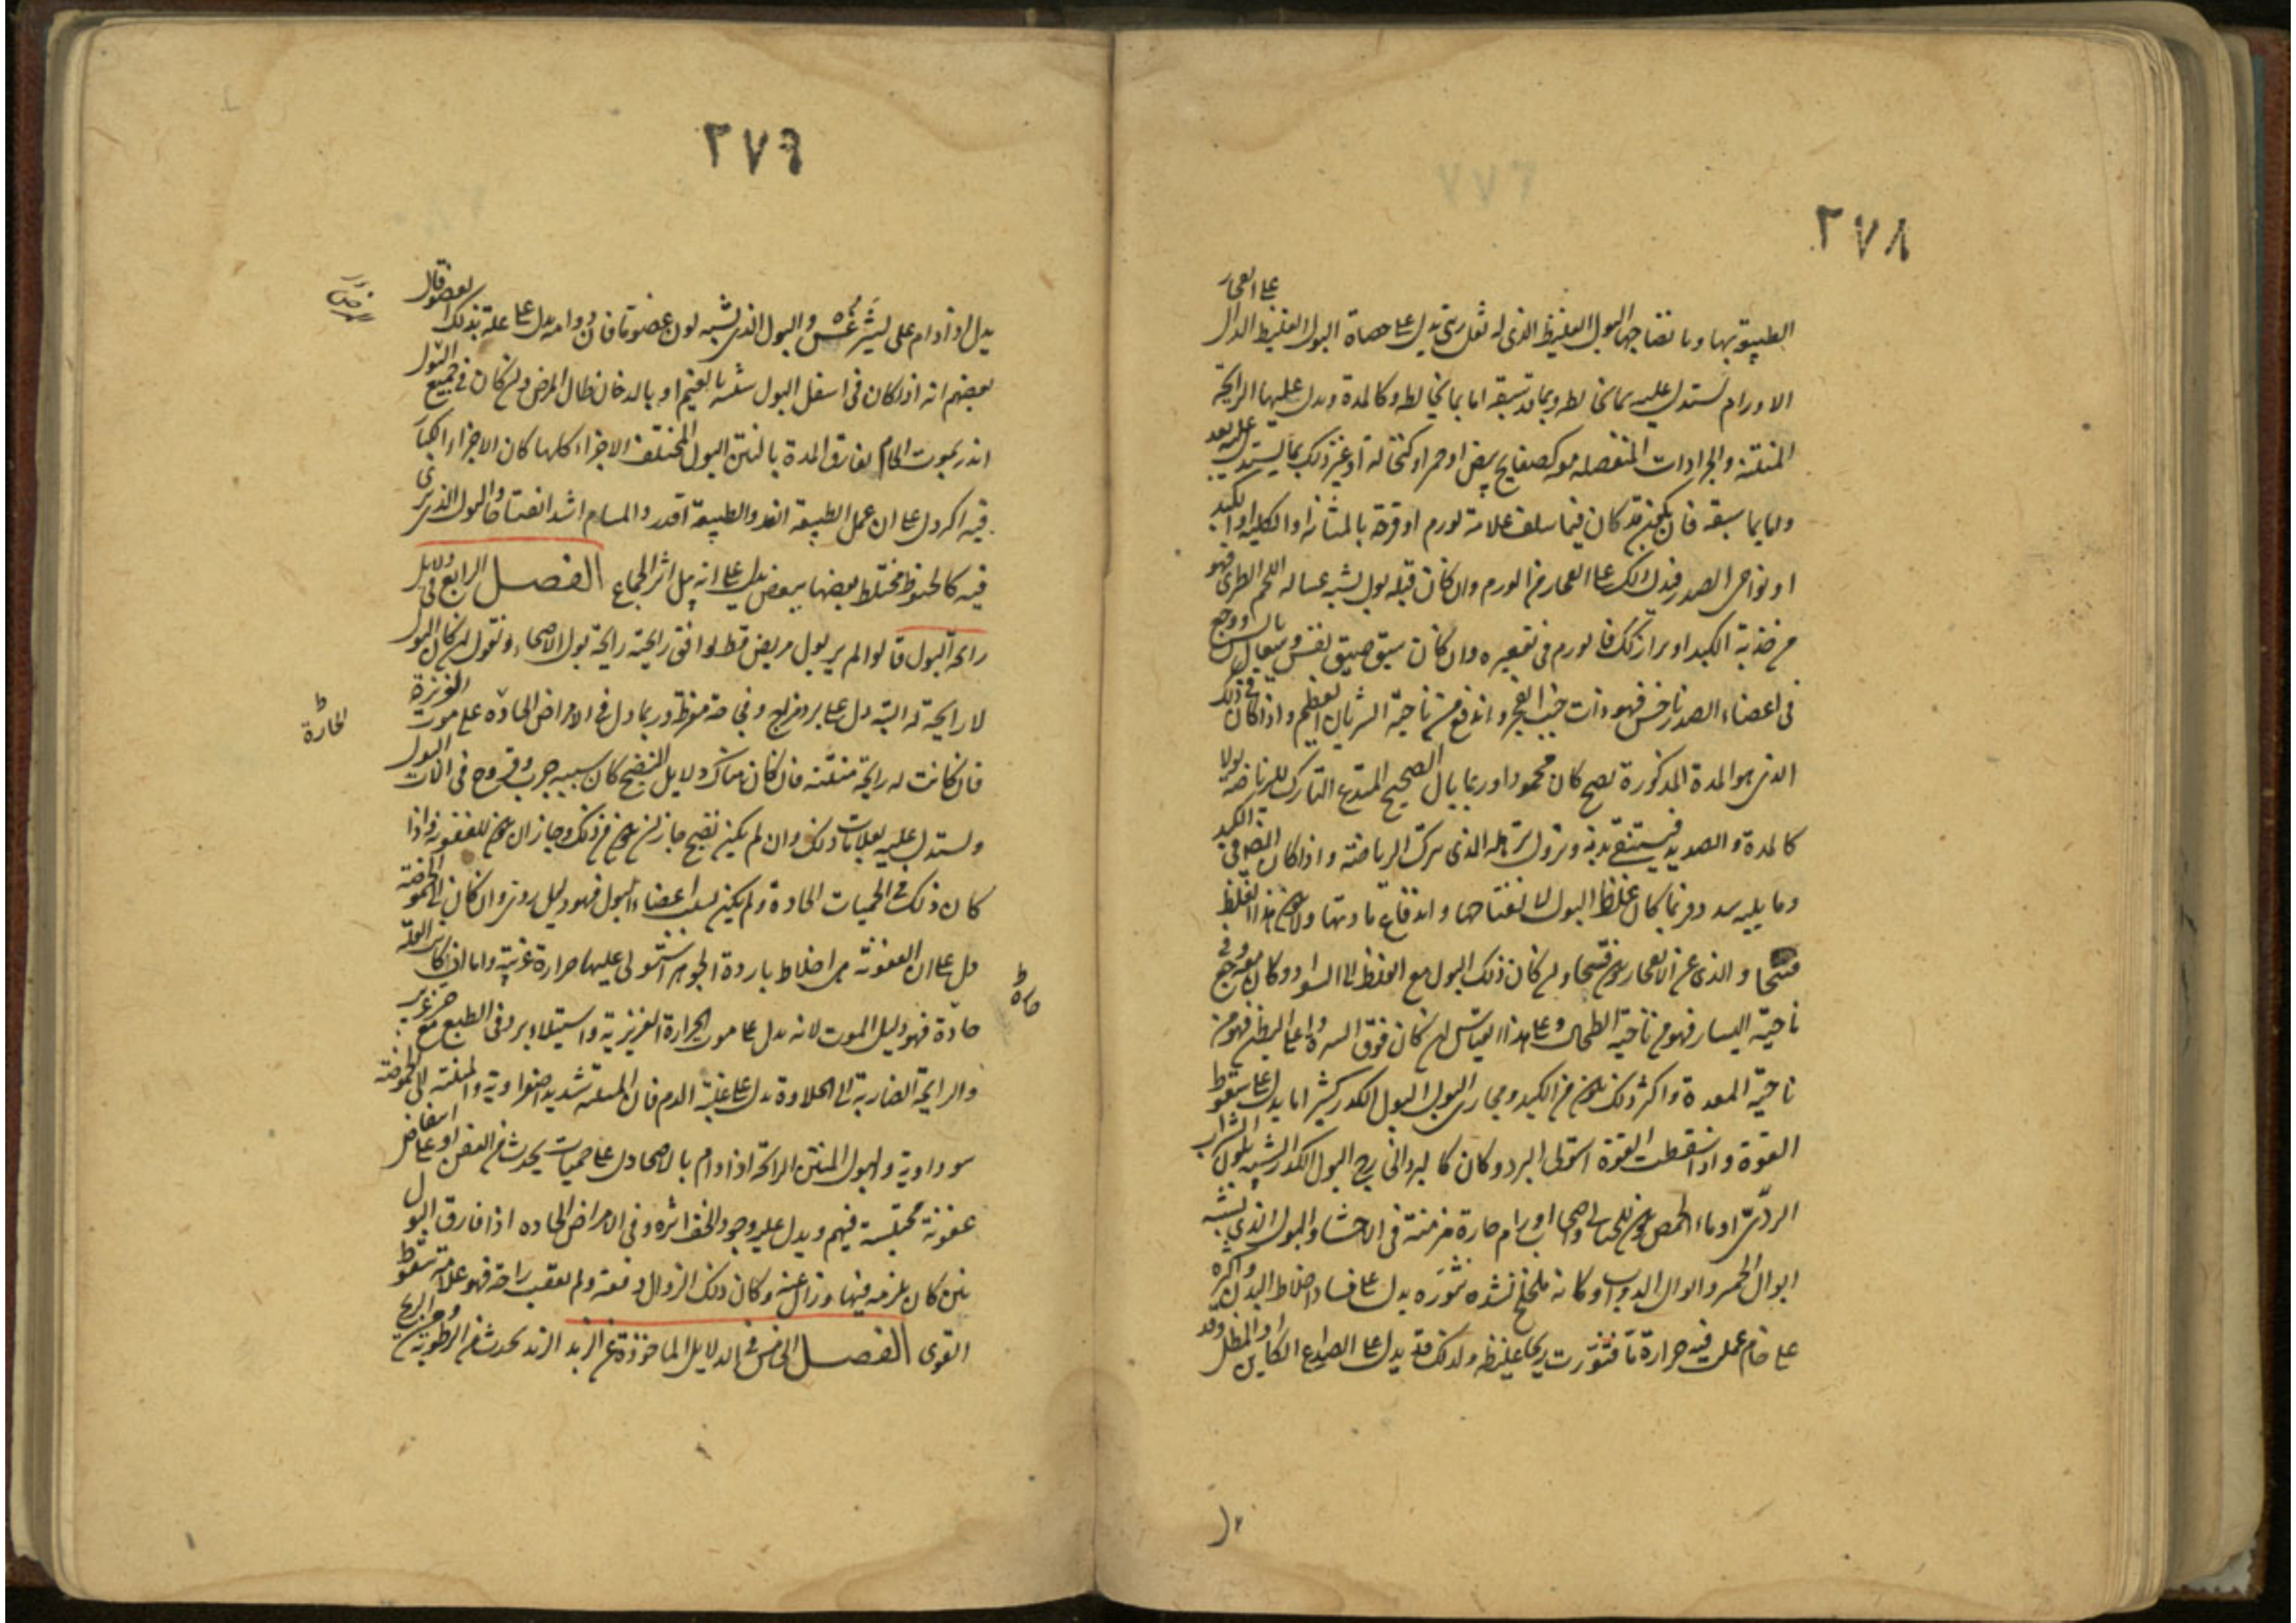 ٢٧٨
الطبيعة بها وبانضاجها البول الغليظ الذى له ثفل رملى يدل على حصاة البول الغليظ الدال على انفجار
الاورام يستدل عليه بما يخالطه وبما قد سبقه اما بما يخالطه وكالمدة ويدل عليها الرايحة
المنتنة والجرادات المنفصلة معه كصفايح بيض او حمر او كنخالة او غير ذلك مما يستدل عليه بعد
واما بما سبقه فان يكون قد كان فيما سلف علامة لورم او قرحة بالمثانة او الكلية او الكبد
او نواحى الصدر فيدل ذلك على انفجار من الورم وان كان قبله بول يشبه غسالة اللحم الطرى فهو
من حدبة الكبد او براز كذلك فالورم فى تقعيره وان كان سبق ضيق نفس وسعال يابس ووجع
فى اعضاء الصدر ناخس فهو ذات جنب انفجر واندفع من ناحية الشريان العظيم واذا كان فى ذلك
الذى هو المدة المذكورة نضج كان محمودا وربما يبال الصحيح المتدع التارك للرياضة بولا
كالمدة والصديد فيستنقى بدنه ويزول ترهله الذى ترك الرياضة واذا كان ايضا فى الكبد
وما يليه سدد فربما كان غلظ البول لانفتاحها واندفاع مادتها ولا يكون هذا الغلظ
قيحيا والذى عن الانفجار يكون قيحيا وان كان ذلك البول مع الغلظ الى السواد وكان معه وجع فى
ناحية اليسار فهو من ناحية الطحال وعلى هذا القياس ان كان فوق السرة واعلى البطن فهو من
ناحية المعدة واكثر ذلك يكون من الكبد ومجارى البول البول الكدر كثيرا ما يدل على سقوط
القوة واذا سقطت القوة استولى البرد وكان كالبرد الخارج البول الكدر الشبيه بلون الشراب
الردى او ماء الحمص يكون للحبالى واصحاب اورام حارة مزمنة فى الاحشا والبول الذى يشبه
ابوال الحمر وابوال الدواب وكانه ملخلخ لشدة تثوره يدل على فساد اخلاط البدن واكثره
على خام عملت فيه حرارة ما فتثورت ريحا غليظه ولذلك قد يدل على الصداع الكاين او المظل وقد
٢٧٩
يدل اذا دام على ليثرغس والبول الذى يشبه لون عضو ما فان دوامه يدل على علة بذلك العضو وقال
بعضهم انه اذا كان فى اسفل البول شبيه بالغيم او بالدخان طال المرض وان كان فى جميع البول
انذر بموت الخام يفارق المدة بالنتن البول المختلف الاجزاء كلها كان الاجزاء الكبار
فيه اكثر دل على ان عمل الطبيعة انفذ والطبيعة اقدر والمسام اشد انفتاحا والبول الذى يرى
فيه كالخيوط مختلط بعضها ببعض يدل على انه بيل اثر الجماع الفصل الرابع فى دلايل
رايحة البول قالوا لم ير بول مريض قط توافق رايحته رايحة بول الاصحاء ونقول ان كان البول
لا رايحة له البتة دل على برد مزاج وفجاجة مفرطة وربما دل فى الامراض الحادة على موت الغريزة
الحارة
فان كانت له رايحة منتنة فان كان هناك دلايل النضج كان سببه جرب وقروح فى الات البول
ويستدل عليه بعلامات ذلك وان لم يكن نضج جاز ان يكون من ذلك وجاز ان يكون للعفونة واذا
كان ذلك فى الحميات الحادة ولم يكن بسبب اعضاء البول فهو دليل ردى وان كان الى الحموضة
دل على ان العفونة هى اخلاط باردة الجوهر استولى عليها حرارة غريبة واما ان كان العلة
حادة فهو دليل الموت لانه يدل على موت الحرارة الغريزية واستيلاء برد فى الطبع مع حر غريب
والرايحة الضاربة الى الحلاوة يدل على غلبة الدم فان المنتنة شديدا صفراوية والمنتنة الى الحموضة
سوداوية والبول المنتن الرايحة اذا دام بالاصحا دل على حميات يحدث من العفن او على انتفاض
عفونة محتبسة فيهم ويدل عليه وجود الخف اثره وفى الامراض الحاده اذا فارق البول
نتن كان يلزمه فيها وزال عنه وكان ذلك الزوال دفعة ولم يعقب راحة فهو علامة سقوط
القوى الفصل الخامس فى الدلايل الماخوذة عن الزبد الزبد يحدث من الرطوبة ومن الريح